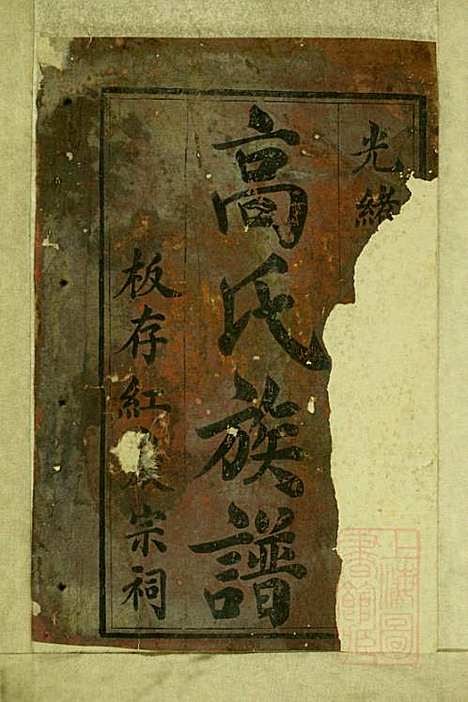 光緒
高氏族譜
板存紅宗祠
上海圖書館藏